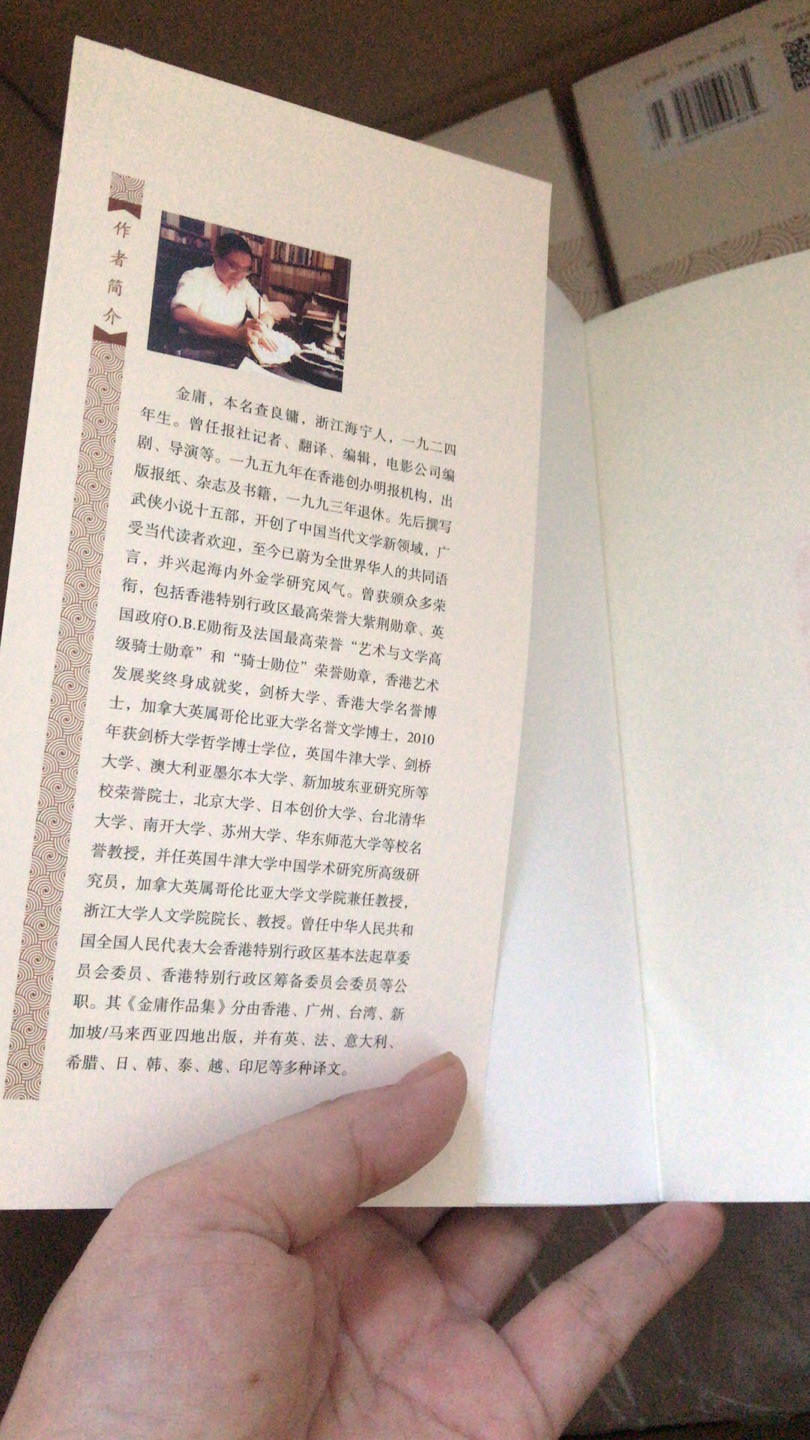 作者简介
金庸，本名查良镛，浙江海宁人，一九二四
年生。曾任报社记者、翻译、编辑，电影公司编
剧、导演等。一九五九年在香港创办明报机构，出
版报纸、杂志及书籍，一九九三年退休。先后撰写
武侠小说十五部，开创了中国当代文学新领域，广
受当代读者欢迎，至今已蔚为全世界华人的共同语
言，并兴起海内外金学研究风气。曾获颁众多荣
衔，包括香港特别行政区最高荣誉大紫荆勋章、英
国政府O.B.E勋衔及法国最高荣誉“艺术与文学高
级骑士勋章”和“骑士勋位”荣誉勋章，香港艺术
发展奖终身成就奖，剑桥大学、香港大学名誉博
士，加拿大英属哥伦比亚大学名誉文学博士，2010
年获剑桥大学哲学博士学位，英国牛津大学、剑桥
大学、澳大利亚墨尔本大学、新加坡东亚研究所等
校荣誉院士，北京大学、日本创价大学、台北清华
大学、南开大学、苏州大学、华东师范大学等校名
誉教授，并任英国牛津大学中国学术研究所高级研
究员，加拿大英属哥伦比亚大学文学院兼任教授，
浙江大学人文学院院长、教授。曾任中华人民共和
国全国人民代表大会香港特别行政区基本法起草委
员会委员、香港特别行政区筹备委员会委员等公
职。其《金庸作品集》分由香港、广州、台湾、新
加坡/马来西亚四地出版，并有英、法、意大利、
希腊、日、韩、泰、越、印尼等多种译文。